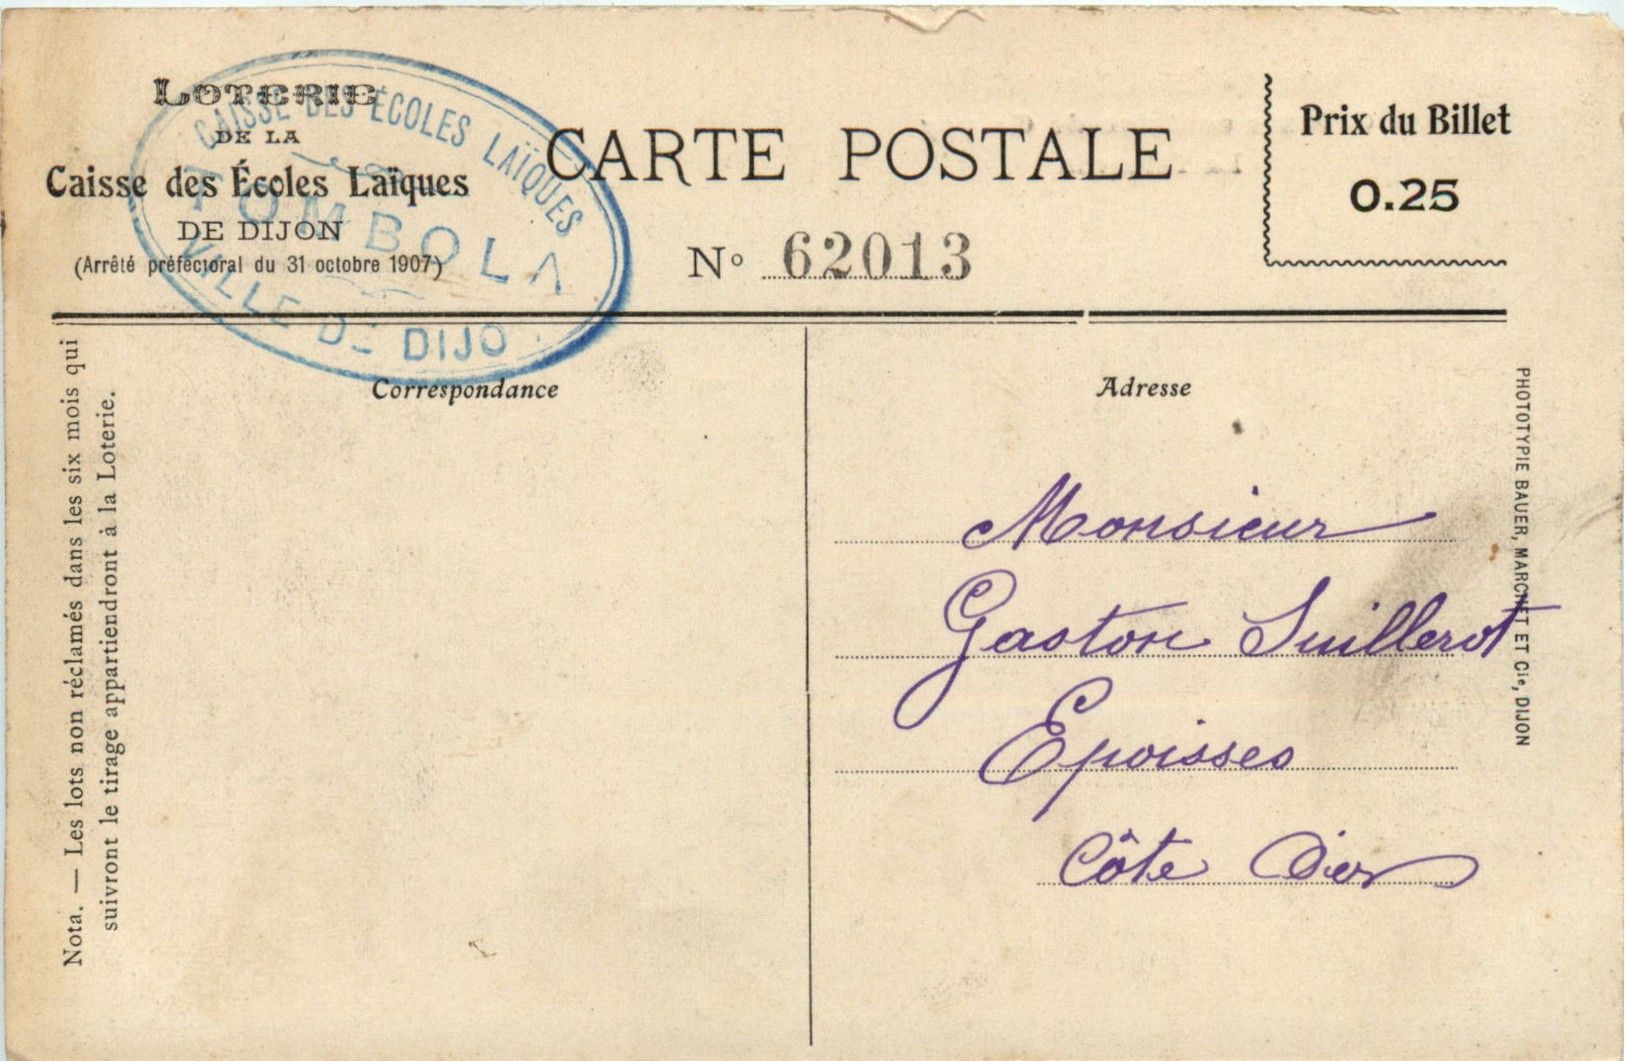 LOTERIE
DE LA
Caisse des Écoles Laïques
DE DIJON
(Arrêté préfectoral du 31 octobre 1907)
CAISSE DES ÉCOLES LAÏQUES
TOMBOLA
VILLE DE DIJO
CARTE POSTALE
Nº 62013
Prix du Billet
0.25
Correspondance
Adresse
Nota. — Les lots non réclamés dans les six mois qui
suivront le tirage appartiendront à la Loterie.
Monsieur
Gaston Suillerot
Epoisses
Côte D'or
PHOTOTYPIE BAUER, MARCHET ET Cie, DIJON